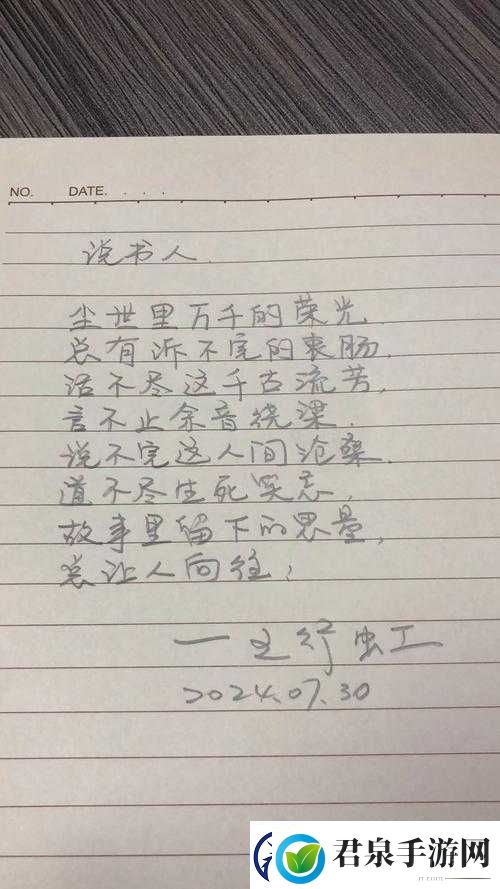 NO. DATE. . . .
说书人.
尘世里万千的荣光
总有诉不完的衷肠.
话不尽这千古流芳,
言不止余音绕梁.
说不完这人间沧桑.
道不尽生死两忘,
故事里留下的思量,
总让人向往;
一 之行虫工
2024.07.30
君泉手游网